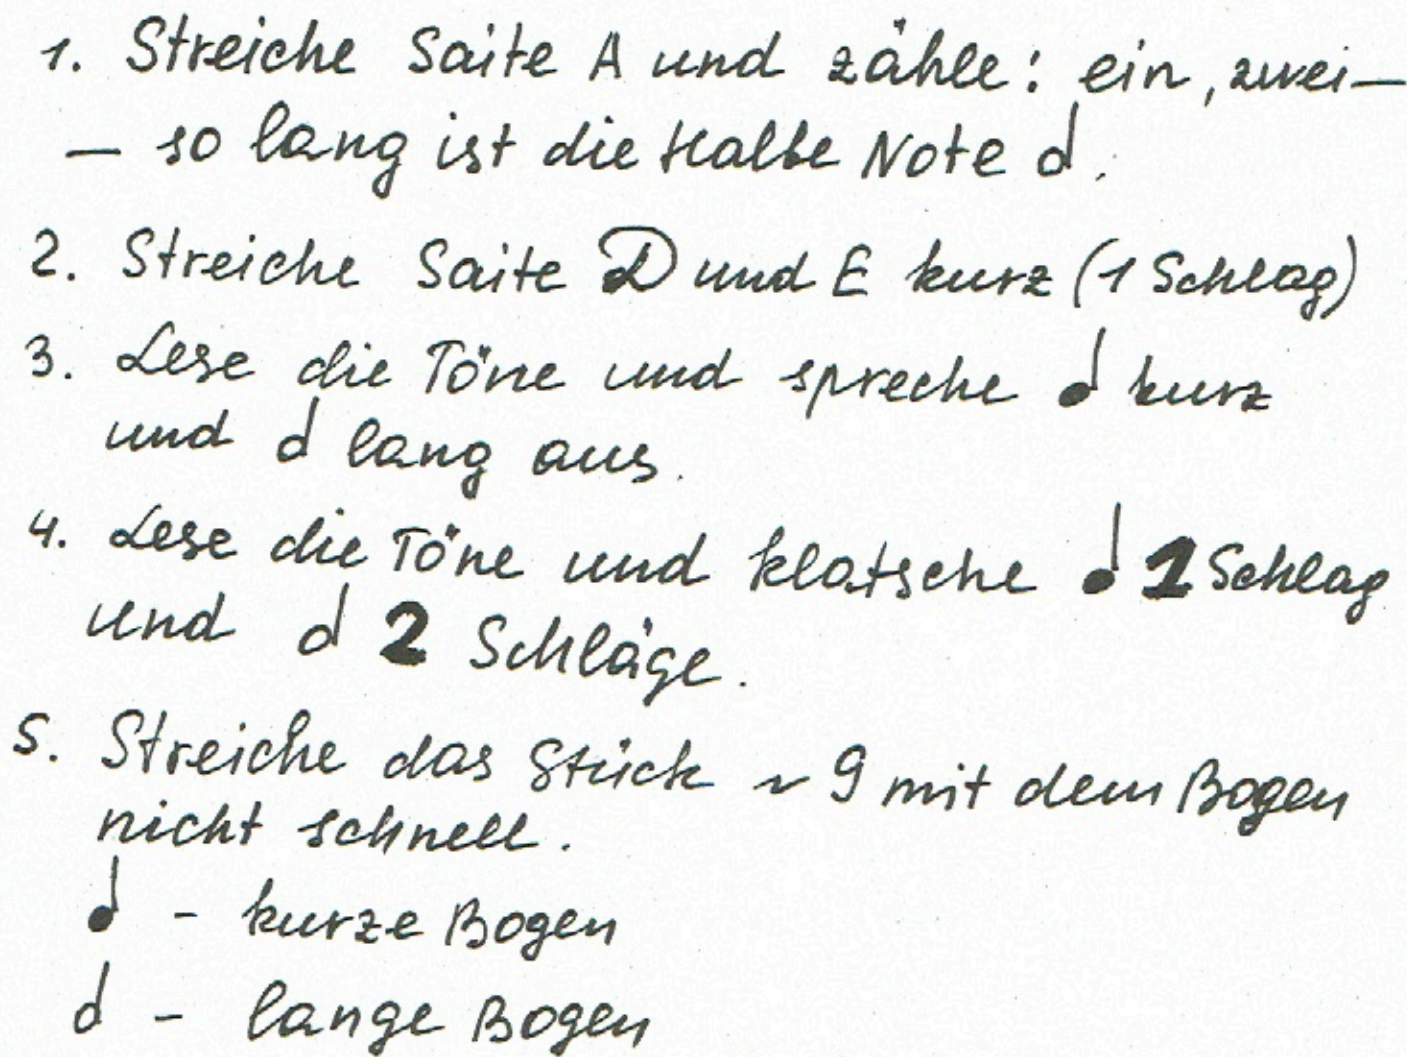 1. Streiche Saite A und zähle: ein, zwei —
— so lang ist die Halbe Note 𝅗𝅥.
2. Streiche Saite D und E kurz (1 Schlag)
3. Lese die Töne und spreche ♩ kurz
und 𝅗𝅥 lang aus.
4. Lese die Töne und klatsche ♩ 1 Schlag
und 𝅗𝅥 2 Schläge.
5. Streiche das Stück ~ 9 mit dem Bogen
nicht schnell.
♩ - kurze Bogen
𝅗𝅥 - lange Bogen